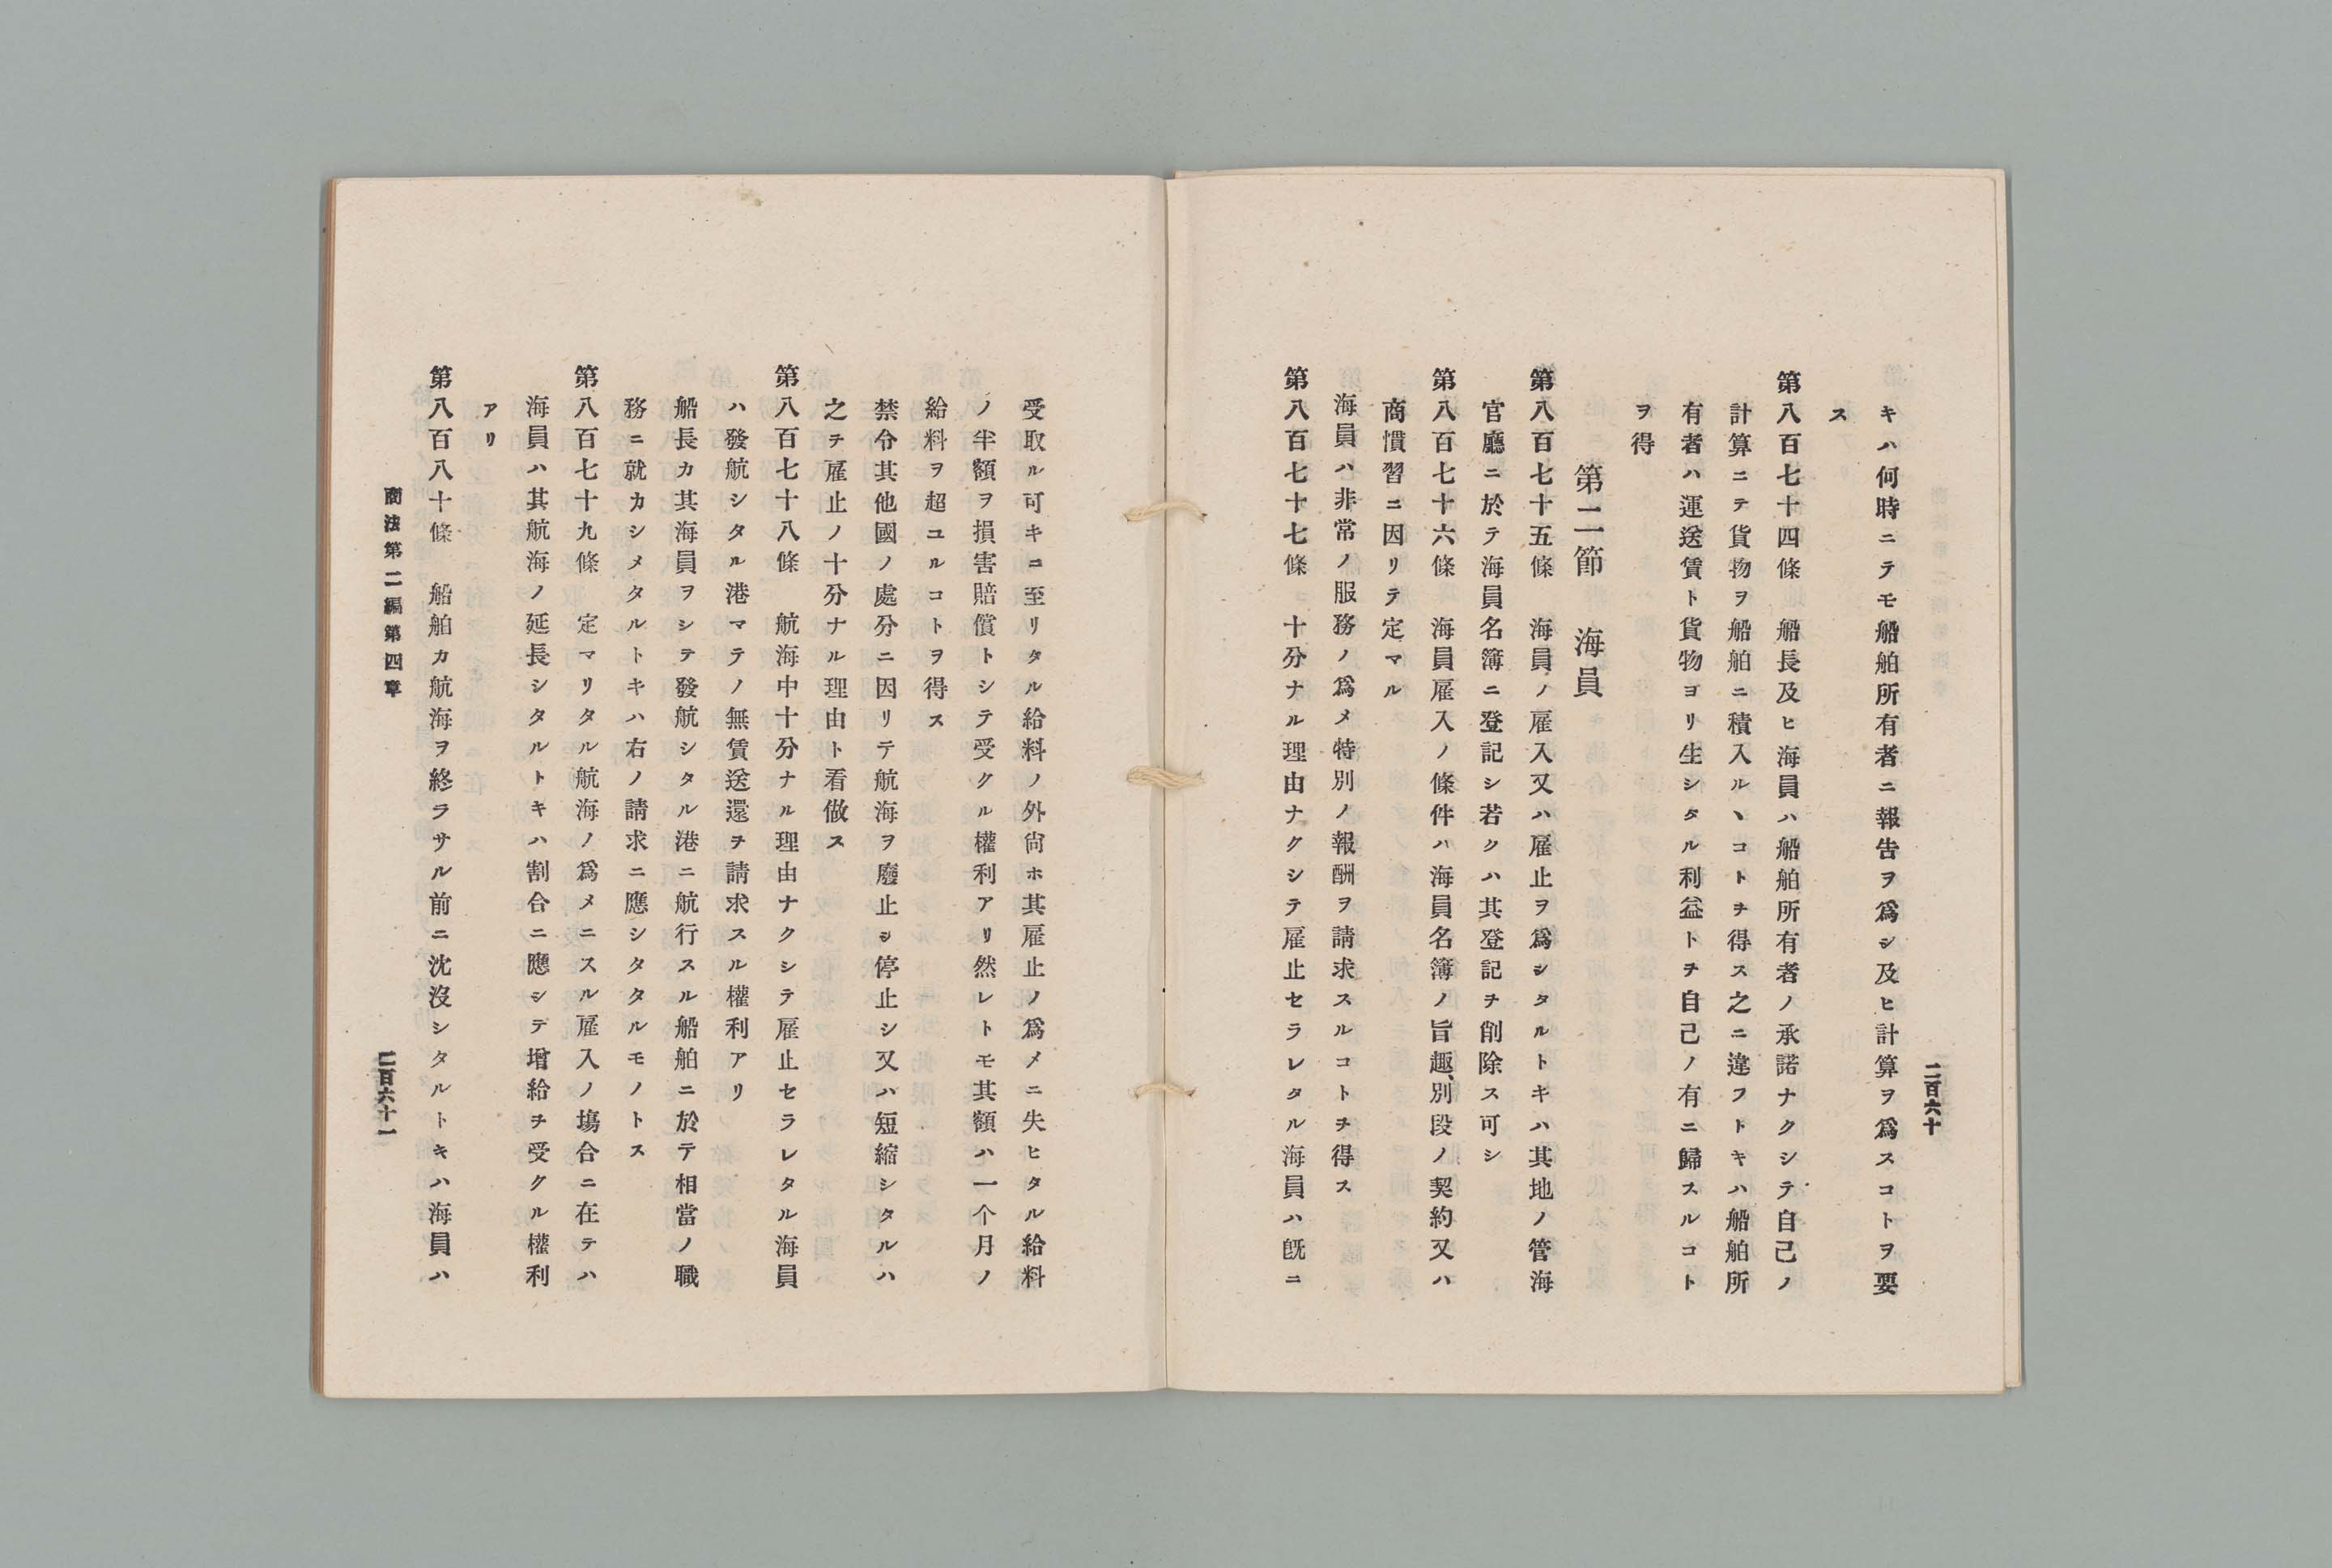 二百六十
キハ何時ニテモ船舶所有者ニ報告ヲ爲シ及ヒ計算ヲ爲スコトヲ要
ス
第八百七十四條　船長及ヒ海員ハ船舶所有者ノ承諾ナクシテ自己ノ
計算ニテ貨物ヲ船舶ニ積入ルヽコトヲ得ス之ニ違フトキハ船舶所
有者ハ運送賃ト貨物ヨリ生シタル利益トヲ自己ノ有ニ歸スルコト
ヲ得
第二節　海員
第八百七十五條　海員ノ雇入又ハ雇止ヲ爲シタルトキハ其地ノ管海
官廳ニ於テ海員名簿ニ登記シ若クハ其登記ヲ削除ス可シ
第八百七十六條　海員雇入ノ條件ハ海員名簿ノ旨趣、別段ノ契約又ハ
商慣習ニ因リテ定マル
海員ハ非常ノ服務ノ爲メ特別ノ報酬ヲ請求スルコトヲ得ス
第八百七十七條　十分ナル理由ナクシテ雇止セラレタル海員ハ既ニ
受取ル可キニ至リタル給料ノ外尙ホ其雇止ノ爲メニ失ヒタル給料
ノ半額ヲ損害賠償トシテ受クル權利アリ然レトモ其額ハ一个月ノ
給料ヲ超ユルコトヲ得ス
禁令其他國ノ處分ニ因リテ航海ヲ廢止シ停止シ又ハ短縮シタルハ
之ヲ雇止ノ十分ナル理由ト看做ス
第八百七十八條　航海中十分ナル理由ナクシテ雇止セラレタル海員
ハ發航シタル港マテノ無賃送還ヲ請求スル權利アリ
船長カ其海員ヲシテ發航シタル港ニ航行スル船舶ニ於テ相當ノ職
務ニ就カシメタルトキハ右ノ請求ニ應シタルモノトス
第八百七十九條　定マリタル航海ノ爲メニスル雇入ノ塲合ニ在テハ
海員ハ其航海ノ延長シタルトキハ割合ニ應シテ增給ヲ受クル權利
アリ
第八百八十條　船舶カ航海ヲ終ラサル前ニ沈沒シタルトキハ海員ハ
商法第二編第四章
二百六十一